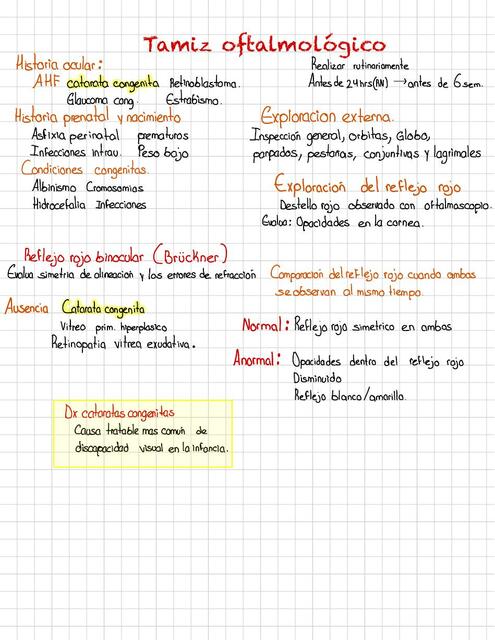 Tamiz oftalmológico
Historia ocular:
AHF catarata congenita Retinoblastoma.
Glaucoma cong. Estrabismo.
Realizar rutinariamente
Antes de 24hrs(RN) → antes de 6 sem.
Historia prenatal y nacimiento
Asfixia perinatal prematuros
Infecciones intrau. Peso bajo
Condiciones congenitas.
Albinismo Cromosomias
Hidrocefalia Infecciones
Exploracion externa.
Inspección general, orbitas, Globo,
parpados, pestañas, conjuntivas y lagrimales
Exploración del reflejo rojo
Destello rojo observado con oftalmoscopio.
Evalua: Opacidades en la cornea.
Reflejo rojo binocular (Brückner)
Evalua simetria de alineación y los errores de refracción
Comparación del reflejo rojo cuando ambos
se observan al mismo tiempo.
Ausencia Catarata congenita
Vitreo prim. hiperplasico
Retinopatia vitrea exudativa.
Normal: Reflejo rojo simetrico en ambos
Anormal: Opacidades dentro del reflejo rojo
Disminuido
Reflejo blanco/amarillo.
Dx cataratas congenitas
Causa tratable mas comun de
discapacidad visual en la infancia.